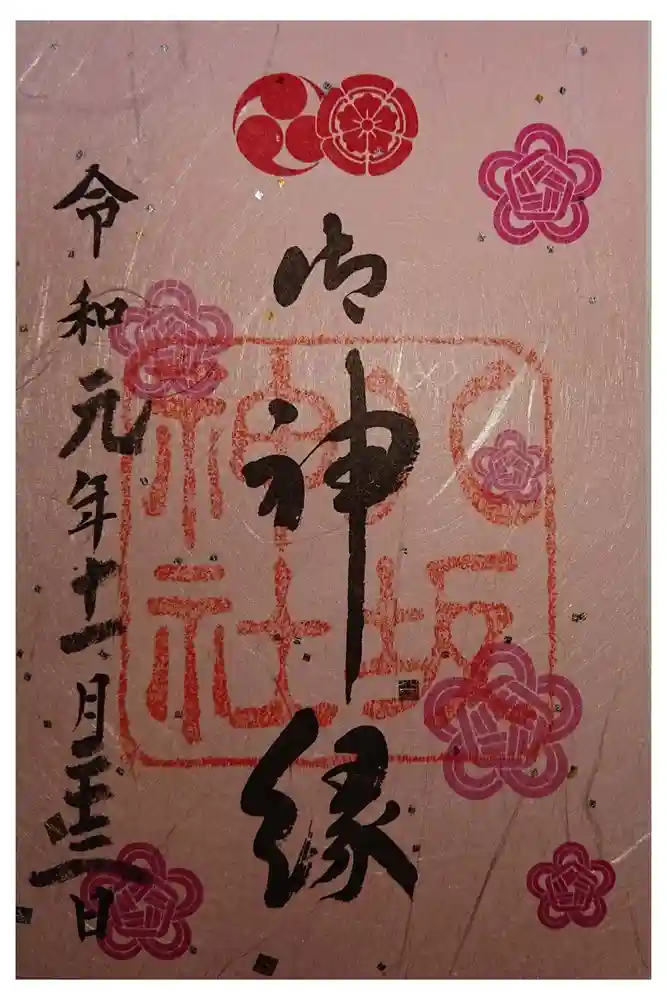 御神縁
令和元年十一月二十三日
八坂
神社